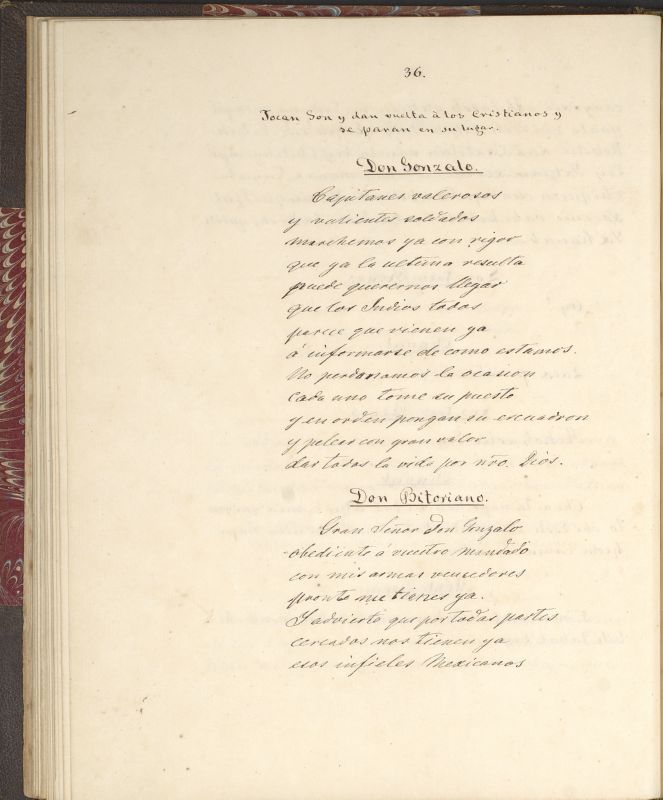 36.
Tocan Son y dan vuelta à los Cristianos y
se paran en su lugar.
Don Gonzalo.
Capitanes valerosos
y valientes soldados
marchemos ya con rigor
que ya la ultima resulta
puede querernos llegar
que los Indios todos
parece que vienen ya
á informarse de como estamos.
No perdamos la ocasion
cada uno tome su puesto
y en orden pongan su escuadron
y pelear con gran valor
dar todos la vida por nro. Dios.
Don Bitoriano.
Gran Señor Don Gonzalo
obediente á vuestro mandado
con mis armas vencedores
pronto me tienes ya.
Y advierto que por todas partes
cercados nos tienen ya
esos infieles Mexicanos